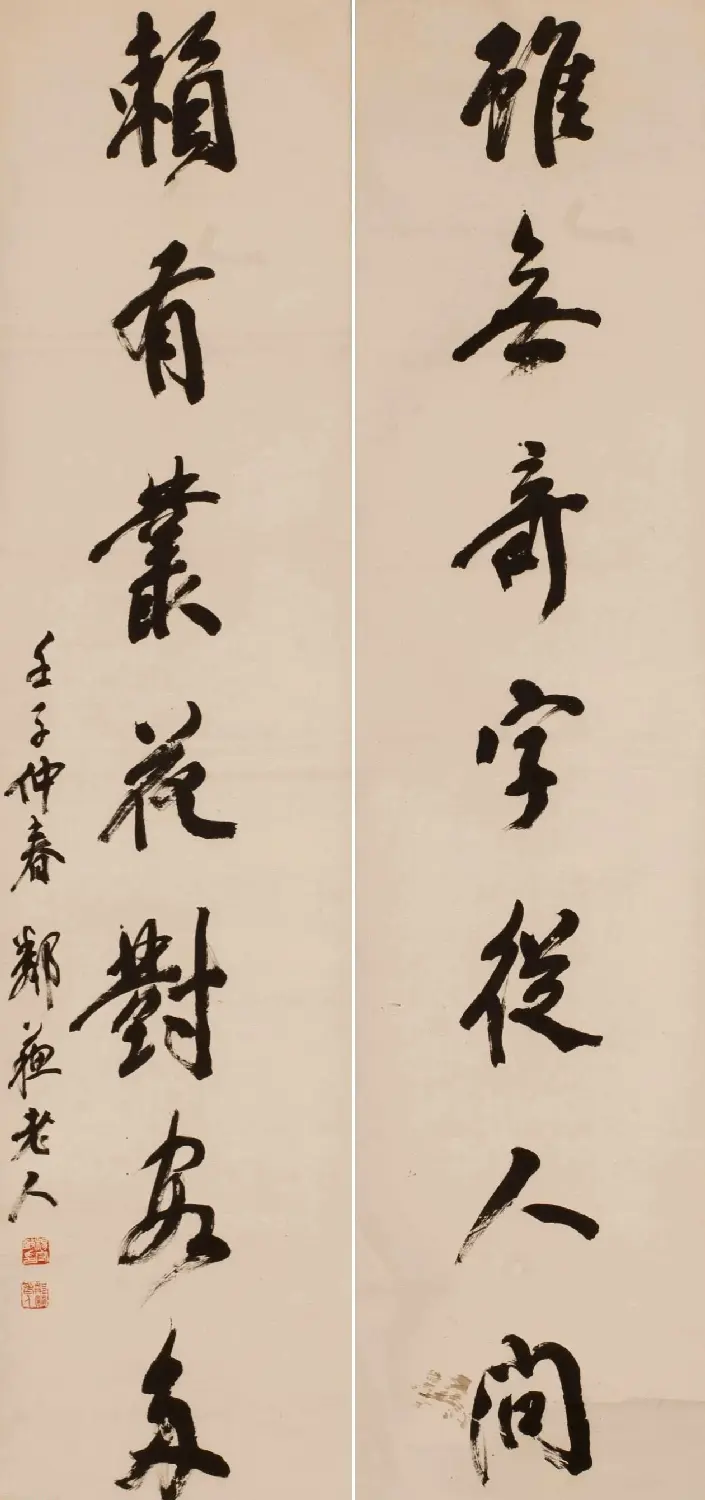 雖無奇字從人問
賴有叢花對
壬子仲春 鄰蘇老人